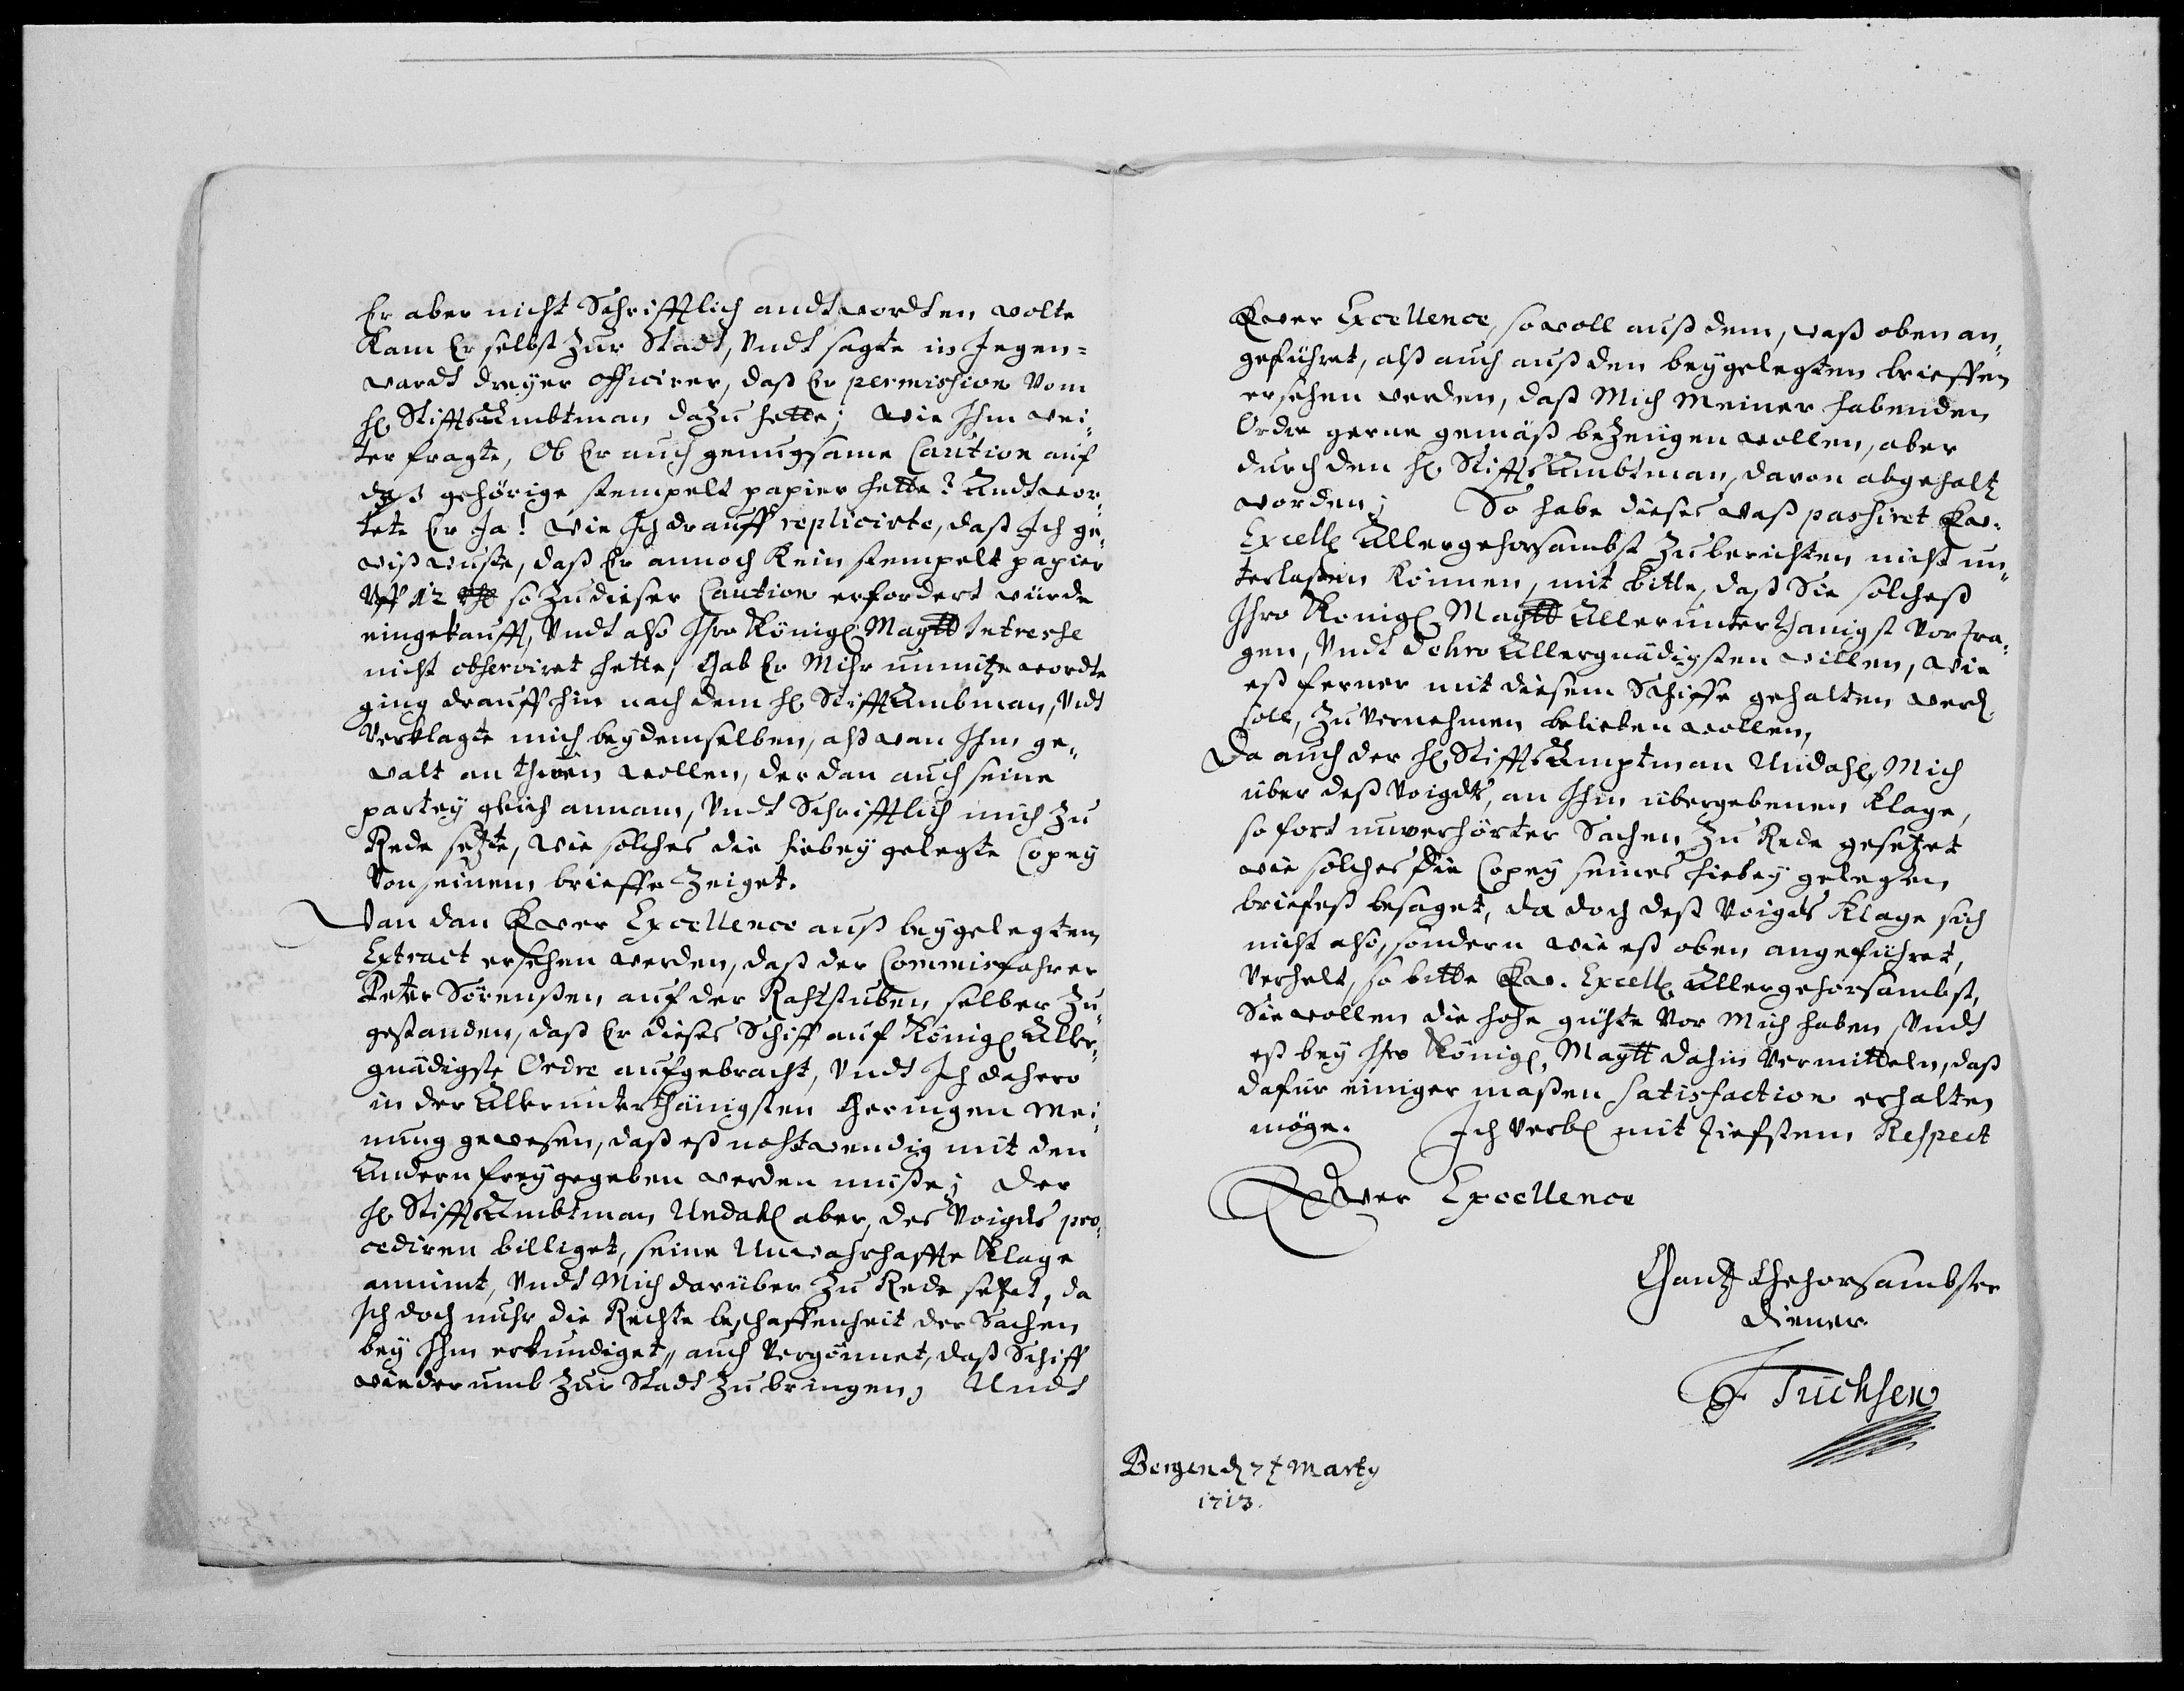 Er aber nicht Schrifftlich andtwordten wolte
Kam Er selbst zur Stadt, Undt sagte in Jegen=
wardt dreyer officirer, daß Er permission Vom
H. StifftsAmbtman dazu hette; wie Ihm wei,
ter fragte, Ob Er auch genugsame Caution auf
daß gehörige stempelt papier hette? Andtwor,
tete Er Ja! wie Ich drauff replicirte, daß Ich ge,
wiß wuste, daß Er annoch Kein stempelt papier
Uff 12 so zu dieser Caution erfordert würde
eingekaufft, Undt also Ihro Königl Maytt Intresse
nicht observiret hette, Gab Er Mihr unnütze wordte
ging drauff hin nach dem H. StifftAmbman, Undt
Verklagte mich bey demselben, alß wan Ihm ge,
walt an thuen wollen, der dan auch seine
partey gleich annam, Undt Schrifftlich mich zu
Rede setzte, wie solches die hiebey gelegte Copey
Von seinem brieffe Zeiget.
Wan dan Ewer Excellence auß beygelegten
Extract ersehen werden, daß der Commisfahrer
Peter Sörenßen, auf der Rahtstuben selber zu,
gestanden, daß Er dieses Schiff auf Königl Aller,
gnädigste Ordre aufgebracht, Undt Ich dahero
in der Allerunterthänigsten Geringen Mei,
nung gewesen, daß eß nohtwendig mit den
Andern freygegeben werden müße; der
H. StifftsAmbtman Undahl aber, des Voigds pro,
cediren billiget, seine Unwahrhaffte Klage
annimt, Undt Mich darüber zu Rede setzet, da
Ich doch nuhr die Rechte beschaffenheit der Sachen
bey Ihm erkundiget, auch Vergönnet, daß Schiff
wiederumb zur Stadt zu bringen, Undt
Ewer Excellence, sowoll auß dem, waß oben an,
geführet, alß auch auß den beygelegten brieffen
ersehen werden, daß Mich Meiner habenden
Ordre gerne gemäß bezeügen wollen, aber
durch den H. StifftsAmbtman, davon abgehalt
worden; So habe dieses waß passiret Ew.
Excell Allergehorsambst zu berichten nicht un,
terlaßen können, mit bitte, daß Sie solcheß
Ihro Königl Maytt Allerunterthänigst Vortra,
gen, Undt dehro Allergnädigsten willen, wie
eß ferner mit diesem Schiffe gehalten werd
soll, zu Vernehmen belieben wollen,
Da auch der H. StifftsAmptman Undahl, Mich
über deß Voigds, an Ihm übergebenen Klage,
so fort unverhörter Sachen, zu Rede gesetzet
wie solches die Copey seines hiebey gelegten
briefeß besaget, da doch deß Voigds Klage sich
nicht also, sondern wie eß oben angeführet,
Verhelt, so bitte Ew. Excell Allergehorsambst,
Sie wollen die hohe gühte Vor Mich haben, Undt
eß bey Ihro Königl Maytt dahin Vermitteln, daß
dafür einiger maßen Satisfaction erhalten
möge. Ich Verbl mit tiefstem Respect
Ewer Excellence
Gantz Gehorsambster
diener
Tuchsen
Bergen d 7t Marty
1713.